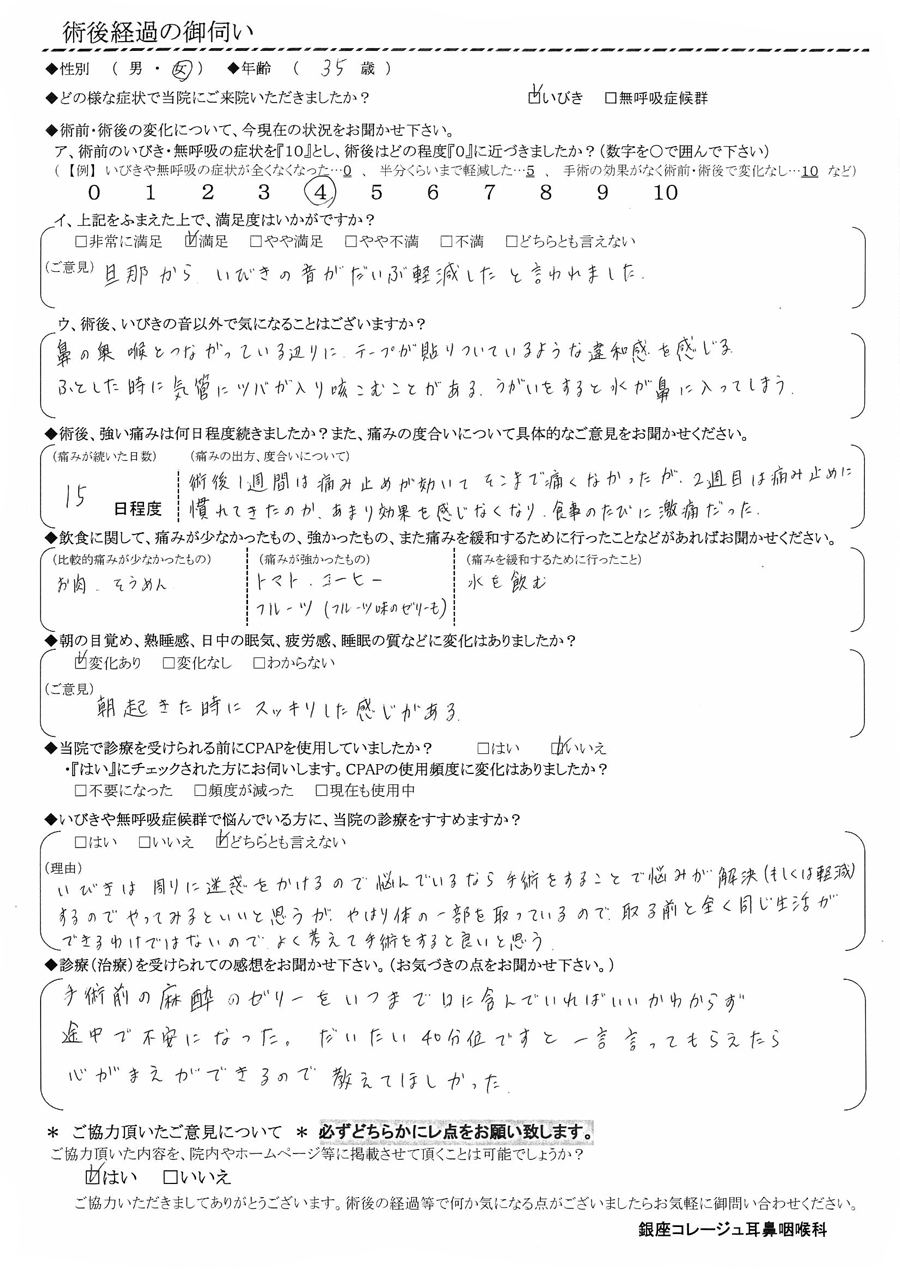 術後経過の御伺い
◆性別 （ 男 ・ 女 ） ◆年齢 （ 35 歳 ）
◆どの様な症状で当院にご来院いただきましたか？ ☑いびき □無呼吸症候群
◆術前・術後の変化について、今現在の状況をお聞かせ下さい。
ア、術前のいびき・無呼吸の症状を『10』とし、術後はどの程度『0』に近づきましたか？（数字を〇で囲んで下さい）
（【例】いびきや無呼吸の症状が全くなくなった…0 、 半分くらいまで軽減した…5 、 手術の効果がなく術前・術後で変化なし…10 など）
0 1 2 3 4 5 6 7 8 9 10
イ、上記をふまえた上で、満足度はいかがですか？
□非常に満足 ☑満足 □やや満足 □やや不満 □不満 □どちらとも言えない
（ご意見） 旦那から、いびきの音がだいぶ軽減したと言われました。
ウ、術後、いびきの音以外で気になることはございますか？
鼻の奥 喉とつながっている辺りに、テープが貼りついているような違和感を感じる
ふとした時に気管にツバが入り咳こむことがある。うがいをすると水が鼻に入ってしまう。
◆術後、強い痛みは何日程度続きましたか？また、痛みの度合いについて具体的なご意見をお聞かせください。
（痛みが続いた日数） （痛みの出方、度合いについて）
15 日程度
術後1週間は痛み止めが効いて そこまで痛くなかったが、2週目は痛み止めに
慣れてきたのか、あまり効果を感じなくなり、食事のたびに激痛だった。
◆飲食に関して、痛みが少なかったもの、強かったもの、また痛みを緩和するために行ったことなどがあればお聞かせください。
（比較的痛みが少なかったもの） （痛みが強かったもの） （痛みを緩和するために行ったこと）
お肉、そうめん トマト、コーヒー 水を飲む
フルーツ（フルーツ味のゼリーも）
◆朝の目覚め、熟睡感、日中の眠気、疲労感、睡眠の質などに変化はありましたか？
☑変化あり □変化なし □わからない
（ご意見）
朝起きた時に スッキリした感じがある。
◆当院で診療を受けられる前にCPAPを使用していましたか？ □はい ☑いいえ
・『はい』にチェックされた方にお伺いします。CPAPの使用頻度に変化はありましたか？
□不要になった □頻度が減った □現在も使用中
◆いびきや無呼吸症候群で悩んでいる方に、当院の診療をすすめますか？
□はい □いいえ ☑どちらとも言えない
（理由）
いびきは 周りに迷惑をかけるので悩んでいるなら手術をすることで悩みが解決（もしくは軽減）
するのでやってみるといいと思うが、やはり体の一部を取っているので、取る前と全く同じ生活が
できるわけではないので、よく考えて手術をすると良いと思う。
◆診療（治療）を受けられての感想をお聞かせ下さい。（お気づきの点をお聞かせ下さい。）
手術前の麻酔のゼリーをいつまで口に含んでいればいいかわからず
途中で不安になった。 だいたい40分位ですと一言言ってもらえたら
心がまえができるので 教えてほしかった。
＊ ご協力頂いたご意見について ＊ 必ずどちらかにレ点をお願い致します。
ご協力頂いた内容を、院内やホームページ等に掲載させて頂くことは可能でしょうか？
☑はい □いいえ
ご協力いただきましてありがとうございます。術後の経過等で何か気になる点がございましたらお気軽に御問い合わせください。
銀座コレージュ耳鼻咽喉科